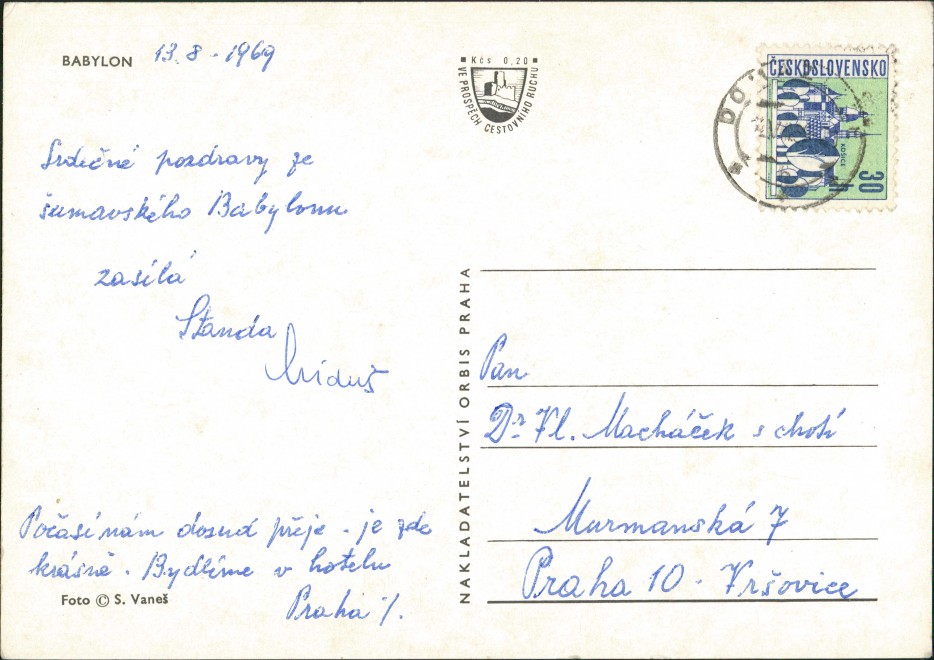 BABYLON 13.8-1969
Srdečné pozdravy ze
šumavského Babylonu
zasílá
Standa
Počasí nám dosud přeje - je zde
krásně. Bydlíme v hotelu
Praha
Foto © S. Vaneš
Kčs 0,20
VE PROSPĚCH CESTOVNÍHO RUCHU
NAKLADATELSTVÍ ORBIS PRAHA
ČESKOSLOVENSKO
KOŠICE
30 h
Pan
Dr Vl. Macháček s chotí
Murmanská 7
Praha 10 - Vršovice